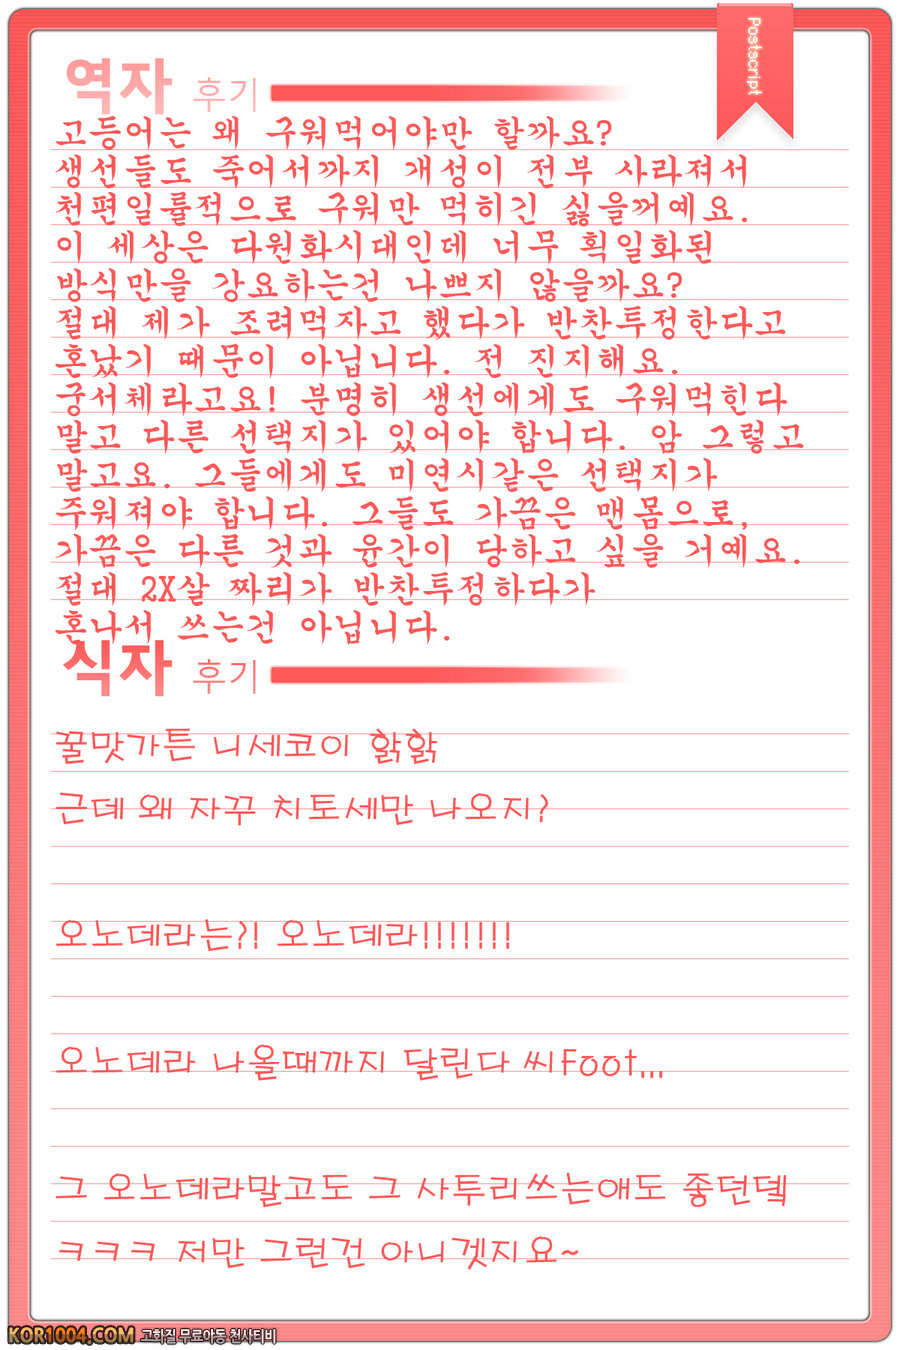 Postscript
역자 후기
고등어는 왜 구워먹어야만 할까요?
생선들도 죽어서까지 개성이 전부 사라져서
천편일률적으로 구워만 먹히긴 싫을꺼예요.
이 세상은 다원화시대인데 너무 획일화된
방식만을 강요하는건 나쁘지 않을까요?
절대 제가 조려먹자고 했다가 반찬투정한다고
혼났기 때문이 아닙니다. 전 진지해요.
궁서체라고요! 분명히 생선에게도 구워먹힌다
말고 다른 선택지가 있어야 합니다. 암 그렇고
말고요. 그들에게도 미연시같은 선택지가
주워져야 합니다. 그들도 가끔은 맨몸으로,
가끔은 다른 것과 윤간이 당하고 싶을 거예요.
절대 2X살 짜리가 반찬투정하다가
혼나서 쓰는건 아닙니다.
식자 후기
꿀맛가튼 니세코이 핡핡
근데 왜 자꾸 치토세만 나오지?
오노데라는?! 오노데라!!!!!!!
오노데라 나올때까지 달린다 씨foot...
그 오노데라말고도 그 사투리쓰는애도 좋던뎈
ㅋㅋㅋ 저만 그런건 아니겟지요~
KOR1004.COM 고화질 무료야동 천사티비